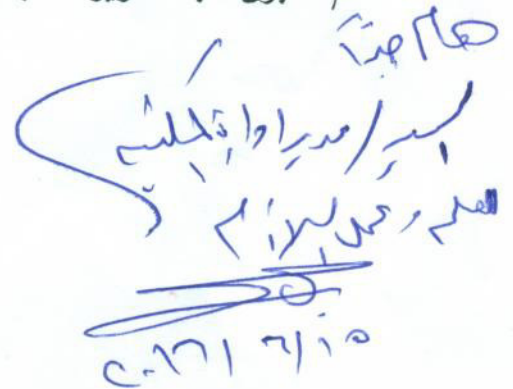 هام جداً
السيد / مدير إدارة المكتبة
للعلم وعمل اللازم
٢٠١٦/ ٦/١٥